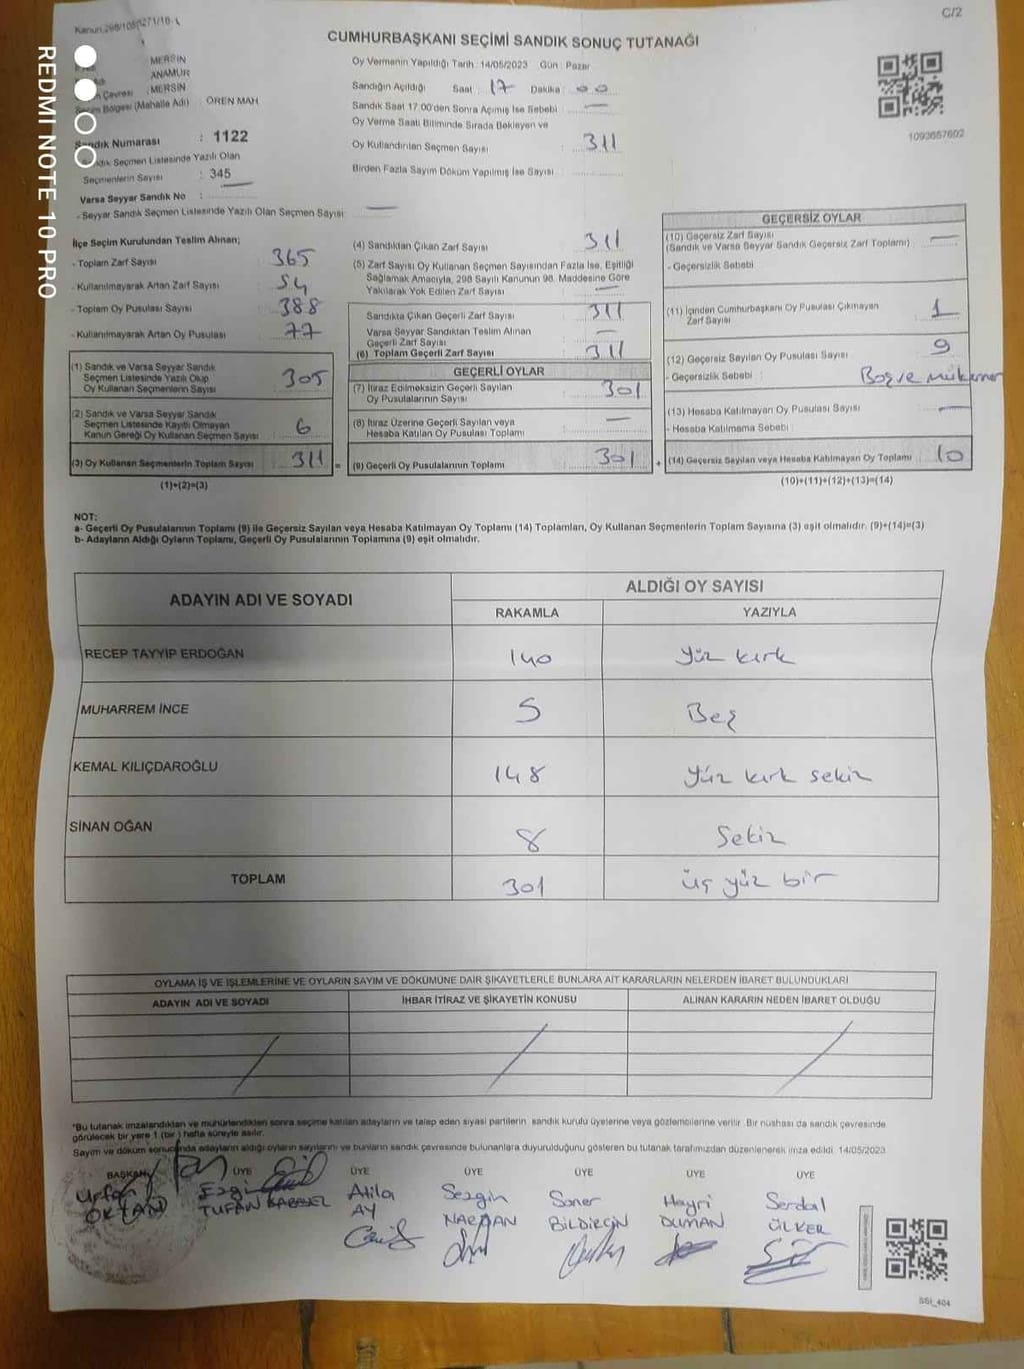 C/2
CUMHURBAŞKANI SEÇİMİ SANDIK SONUÇ TUTANAĞI
MERSİN
ANAMUR
MERSİN
Bölgesi (Mahalle Adı) : ÖREN MAH
Sandık Numarası : 1122
Sandık Seçmen Listesinde Yazılı Olan
Seçmenlerin Sayısı : 345
Varsa Seyyar Sandık No :
- Seyyar Sandık Seçmen Listesinde Yazılı Olan Seçmen Sayısı: —
Oy Vermenin Yapıldığı Tarih : 14/05/2023 Gün : Pazar
Sandığın Açıldığı Saat : 17 Dakika : 00
Sandık Saat 17.00'den Sonra Açılmış İse Sebebi : —
Oy Verme Saati Bitiminde Sırada Bekleyen ve
Oy Kullandırılan Seçmen Sayısı : 311
Birden Fazla Sayım Döküm Yapılmış İse Sayısı :
1093657602
İlçe Seçim Kurulundan Teslim Alınan;
- Toplam Zarf Sayısı 365
- Kullanılmayarak Artan Zarf Sayısı 54
- Toplam Oy Pusulası Sayısı 388
- Kullanılmayarak Artan Oy Pusulası 77
(1) Sandık ve Varsa Seyyar Sandık
Seçmen Listesinde Yazılı Olup
Oy Kullanan Seçmenlerin Sayısı 305
(2) Sandık ve Varsa Seyyar Sandık
Seçmen Listesinde Kayıtlı Olmayan
Kanun Gereği Oy Kullanan Seçmen Sayısı 6
(3) Oy Kullanan Seçmenlerin Toplam Sayısı 311 =
(1)+(2)=(3)
(4) Sandıktan Çıkan Zarf Sayısı 311
(5) Zarf Sayısı Oy Kullanan Seçmen Sayısından Fazla İse, Eşitliği
Sağlamak Amacıyla, 298 Sayılı Kanunun 98. Maddesine Göre
Yakılarak Yok Edilen Zarf Sayısı —
Sandıkta Çıkan Geçerli Zarf Sayısı 311
Varsa Seyyar Sandıktan Teslim Alınan
Geçerli Zarf Sayısı —
(6) Toplam Geçerli Zarf Sayısı 311
GEÇERLİ OYLAR
(7) İtiraz Edilmeksizin Geçerli Sayılan
Oy Pusulalarının Sayısı 301
(8) İtiraz Üzerine Geçerli Sayılan veya
Hesaba Katılan Oy Pusulası Toplamı —
(9) Geçerli Oy Pusulalarının Toplamı 301 +
GEÇERSİZ OYLAR
(10) Geçersiz Zarf Sayısı
(Sandık ve Varsa Seyyar Sandık Geçersiz Zarf Toplamı) —
- Geçersizlik Sebebi
(11) İçinden Cumhurbaşkanı Oy Pusulası Çıkmayan
Zarf Sayısı 1
(12) Geçersiz Sayılan Oy Pusulası Sayısı 9
- Geçersizlik Sebebi : Boş ve mükerrer
(13) Hesaba Katılmayan Oy Pusulası Sayısı —
- Hesaba Katılmama Sebebi :
(14) Geçersiz Sayılan veya Hesaba Katılmayan Oy Toplamı 10
(10)+(11)+(12)+(13)=(14)
NOT:
a- Geçerli Oy Pusulalarının Toplamı (9) ile Geçersiz Sayılan veya Hesaba Katılmayan Oy Toplamı (14) Toplamları, Oy Kullanan Seçmenlerin Toplam Sayısına (3) eşit olmalıdır. (9)+(14)=(3)
b- Adayların Aldığı Oyların Toplamı, Geçerli Oy Pusulalarının Toplamına (9) eşit olmalıdır.
ADAYIN ADI VE SOYADI
ALDIĞI OY SAYISI
RAKAMLA YAZIYLA
RECEP TAYYİP ERDOĞAN 140 Yüz kırk
MUHARREM İNCE 5 Beş
KEMAL KILIÇDAROĞLU 148 Yüz kırk sekiz
SİNAN OĞAN 8 Sekiz
TOPLAM 301 üç yüz bir
OYLAMA İŞ VE İŞLEMLERİNE VE OYLARIN SAYIM VE DÖKÜMÜNE DAİR ŞİKAYETLERLE BUNLARA AİT KARARLARIN NELERDEN İBARET BULUNDUKLARI
ADAYIN ADI VE SOYADI İHBAR İTİRAZ VE ŞİKAYETİN KONUSU ALINAN KARARIN NEDEN İBARET OLDUĞU
*Bu tutanak imzalandıktan ve mühürlendikten sonra seçime katılan adayların ve talep eden siyasi partilerin sandık kurulu üyelerine veya gözlemcilerine verilir. Bir nüshası da sandık çevresinde
görülecek bir yere 1 (bir) hafta süreyle asılır.
Sayım ve döküm sonucunda adayların aldığı oyların sayılarını ve bunların sandık çevresinde bulunanlara duyurulduğunu gösteren bu tutanak tarafımızdan düzenlenerek imza edildi. 14/05/2023
BAŞKAN ÜYE ÜYE ÜYE ÜYE ÜYE ÜYE
Ezgi Atila Sezgin Soner Hayri Serdal
TUFAN AY BİLDİRCİN DUMAN ÜLKER
SSI_404
REDMI NOTE 10 PRO